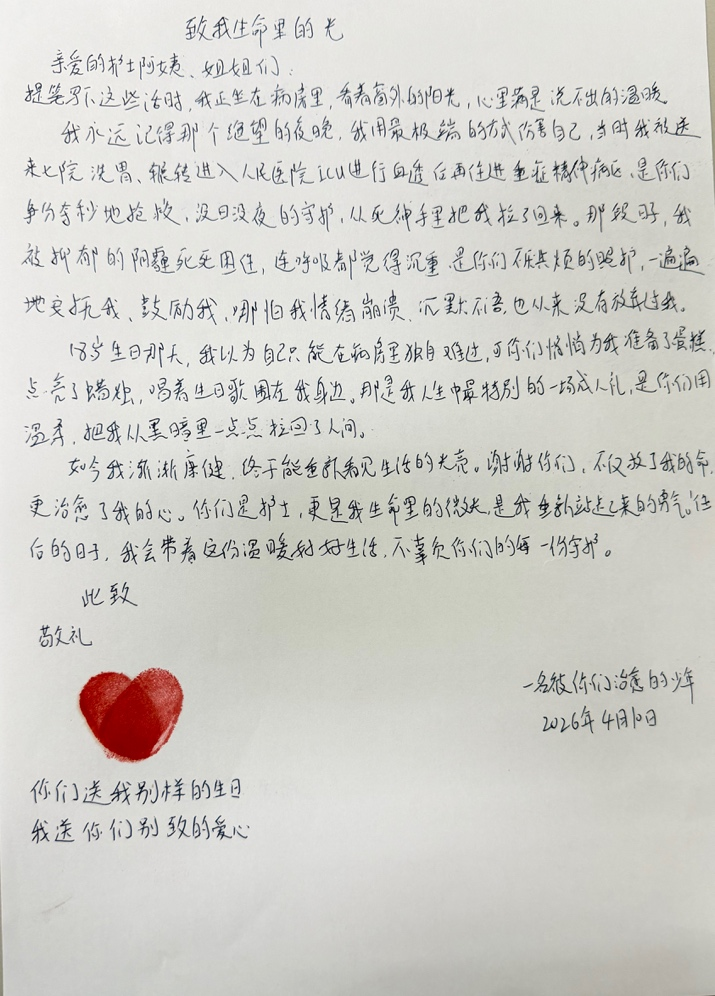 致我生命里的光
亲爱的护士阿姨、姐姐们：
提笔写下这些话时，我正坐在病房里，看着窗外的阳光，心里满是说不出的温暖。
我永远记得那个绝望的夜晚，我用最极端的方式伤害自己，当时我被送
来七院洗胃、辗转进入人民医院icu进行血透后再住进重症精神病区，是你们
争分夺秒地抢救，没日没夜的守护，从死神手里把我拉了回来。那段日子，我
被抑郁的阴霾死死困住，连呼吸都觉得沉重，是你们不厌其烦的照护，一遍遍
地安抚我、鼓励我，哪怕我情绪崩溃、沉默不语，也从来没有放弃过我。
18岁生日那天，我以为自己只能在病房里独自难过，可你们悄悄为我准备了蛋糕，
点亮了蜡烛，唱着生日歌围在我身边。那是我人生中最特别的一场成人礼，是你们用
温柔，把我从黑暗里一点点拉回了人间。
如今我渐渐康健，终于能重新看见生活的光亮。谢谢你们，不仅救了我的命，
更治愈了我的心。你们是护士，更是我生命里的微光，是我重新站起来的勇气。往
后的日子，我会带着这份温暖好好生活，不辜负你们的每一份守护。
此致
敬礼
一名被你们治愈的少年
2026年4月10日
你们送我别样的生日
我送你们别致的爱心